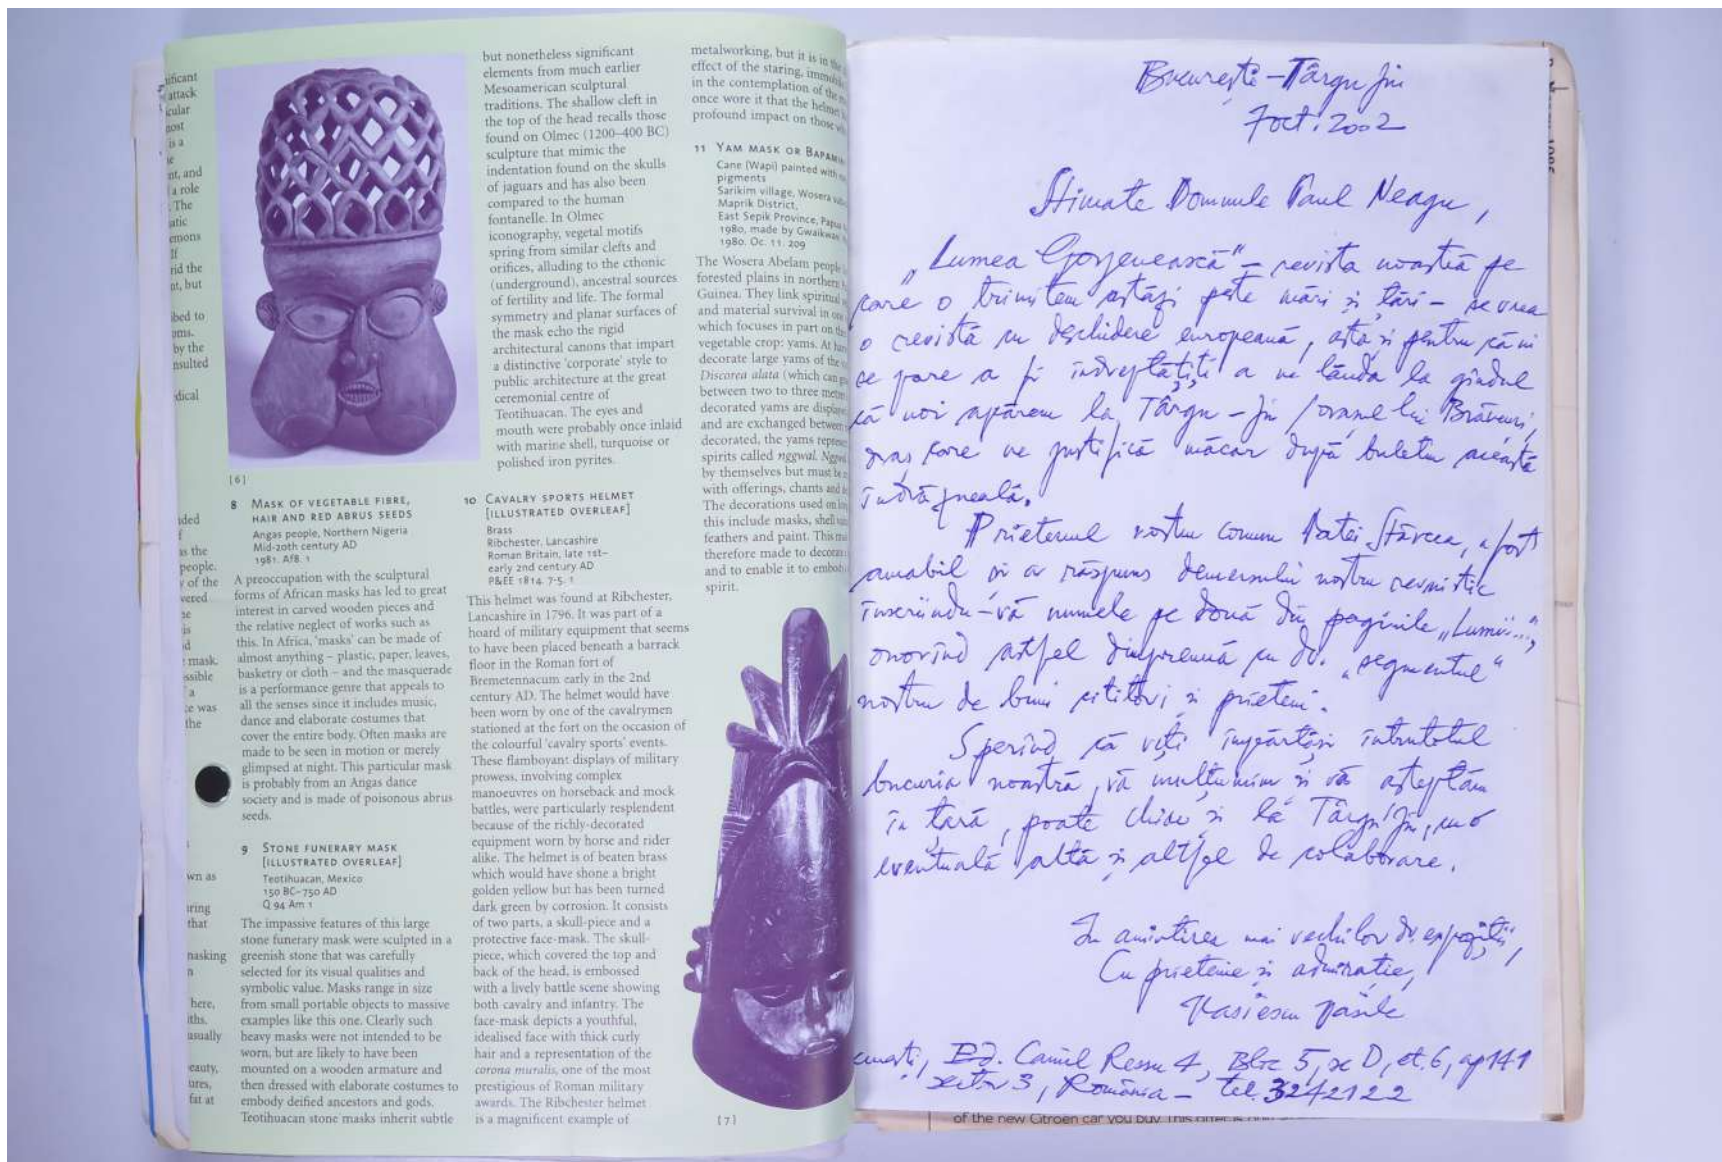 ificant
attack
cular
most
is a
nt, and
a role
. The
atic
emons
If
rid the
nt, but
ibed to
oms.
by the
nsulted
dical
nded
f
as the
people.
y of the
vered
ne
is
d
mask.
ossible
a
ce was
the
wn as
uring
that
nasking
n
here,
iths.
usually
eauty,
ures,
fat at
[6]
8 MASK OF VEGETABLE FIBRE,
HAIR AND RED ABRUS SEEDS
Angas people, Northern Nigeria
Mid-20th century AD
1981. Af8. 1
A preoccupation with the sculptural
forms of African masks has led to great
interest in carved wooden pieces and
the relative neglect of works such as
this. In Africa, 'masks' can be made of
almost anything – plastic, paper, leaves,
basketry or cloth – and the masquerade
is a performance genre that appeals to
all the senses since it includes music,
dance and elaborate costumes that
cover the entire body. Often masks are
made to be seen in motion or merely
glimpsed at night. This particular mask
is probably from an Angas dance
society and is made of poisonous abrus
seeds.
9 STONE FUNERARY MASK
[ILLUSTRATED OVERLEAF]
Teotihuacan, Mexico
150 BC–750 AD
Q 94 Am 1
The impassive features of this large
stone funerary mask were sculpted in a
greenish stone that was carefully
selected for its visual qualities and
symbolic value. Masks range in size
from small portable objects to massive
examples like this one. Clearly such
heavy masks were not intended to be
worn, but are likely to have been
mounted on a wooden armature and
then dressed with elaborate costumes to
embody deified ancestors and gods.
Teotihuacan stone masks inherit subtle
but nonetheless significant
elements from much earlier
Mesoamerican sculptural
traditions. The shallow cleft in
the top of the head recalls those
found on Olmec (1200–400 BC)
sculpture that mimic the
indentation found on the skulls
of jaguars and has also been
compared to the human
fontanelle. In Olmec
iconography, vegetal motifs
spring from similar clefts and
orifices, alluding to the cthonic
(underground), ancestral sources
of fertility and life. The formal
symmetry and planar surfaces of
the mask echo the rigid
architectural canons that impart
a distinctive 'corporate' style to
public architecture at the great
ceremonial centre of
Teotihuacan. The eyes and
mouth were probably once inlaid
with marine shell, turquoise or
polished iron pyrites.
10 CAVALRY SPORTS HELMET
[ILLUSTRATED OVERLEAF]
Brass
Ribchester, Lancashire
Roman Britain, late 1st–
early 2nd century AD
P&EE 1814. 7-5. 1
This helmet was found at Ribchester,
Lancashire in 1796. It was part of a
hoard of military equipment that seems
to have been placed beneath a barrack
floor in the Roman fort of
Bremetennacum early in the 2nd
century AD. The helmet would have
been worn by one of the cavalrymen
stationed at the fort on the occasion of
the colourful 'cavalry sports' events.
These flamboyant displays of military
prowess, involving complex
manoeuvres on horseback and mock
battles, were particularly resplendent
because of the richly-decorated
equipment worn by horse and rider
alike. The helmet is of beaten brass
which would have shone a bright
golden yellow but has been turned
dark green by corrosion. It consists
of two parts, a skull-piece and a
protective face-mask. The skull-
piece, which covered the top and
back of the head, is embossed
with a lively battle scene showing
both cavalry and infantry. The
face-mask depicts a youthful,
idealised face with thick curly
hair and a representation of the
corona muralis, one of the most
prestigious of Roman military
awards. The Ribchester helmet
is a magnificent example of
metalworking, but it is in the
effect of the staring,
in the contemplation of the
once wore it that the helmet
profound impact on those
11 YAM MASK OR
Cane (Wapi) painted with
pigments
Sarikim village, Wosera
Maprik District,
East Sepik Province, Papua
1980, made by Gwaikwan
1980. Oc. 11. 209
The Wosera Abelam people
forested plains in northern
Guinea. They link spiritual
and material survival in
which focuses in part on the
vegetable crop: yams. At
decorate large yams of the
Discorea alata (which can
between two to three
decorated yams are
and are exchanged between
decorated, the yams
spirits called nggwal.
by themselves but must be
with offerings, chants and
The decorations used on
this include masks, shell
feathers and paint. This
therefore made to
and to enable it to
spirit.
[7]
București – Târgu Jiu
7 oct. 2002
Stimate Domnule Paul Neagu,
„Lumea Gorjenească" – revista noastră pe
care o trimitem astăzi peste mări și țări – se vrea
o revistă cu deschidere europeană, asta și pentru că ni
se pare a fi îndreptățiți a ne lăuda la gîndul
că noi apărem la Târgu – Jiu, orașul lui Brâncuși,
oraș care ne justifică măcar după buletin această
îndrăzneală.
Prietenul nostru comun Matei Stârcea, a fost
amabil și a răspuns demersului nostru revuistic
înscriindu-vă numele pe două din paginile „Lumii...",
onorînd astfel dimpreună cu dv. „segmentul"
nostru de buni cititori și prieteni.
Sperînd că veți împărtăși întrutotul
bucuria noastră, vă mulțumim și vă așteptăm
în țară, poate chiar și la Târgu Jiu, cu o
eventuală altă și altfel de colaborare.
În amintirea mai vechilor dv. expoziții,
Cu prietenie și admirație,
Vasile
Bd. Camil Ressu 4, Bloc 5, sc D, et. 6, ap 141
sector 3, România – tel. 3242122
of the new Citroen car you buy. This offer is